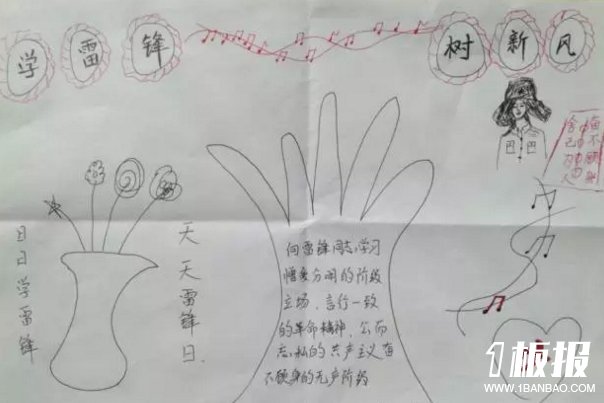 学雷锋
树新风
奋不顾身
舍己为人
日日学雷锋
天天雷锋日
向雷锋同志学习
憎爱分明的阶级
立场，言行一致
的革命精神，公而
忘私的共产主义奋
不顾身的无产阶级
1板报
WWW.1BANBAO.COM